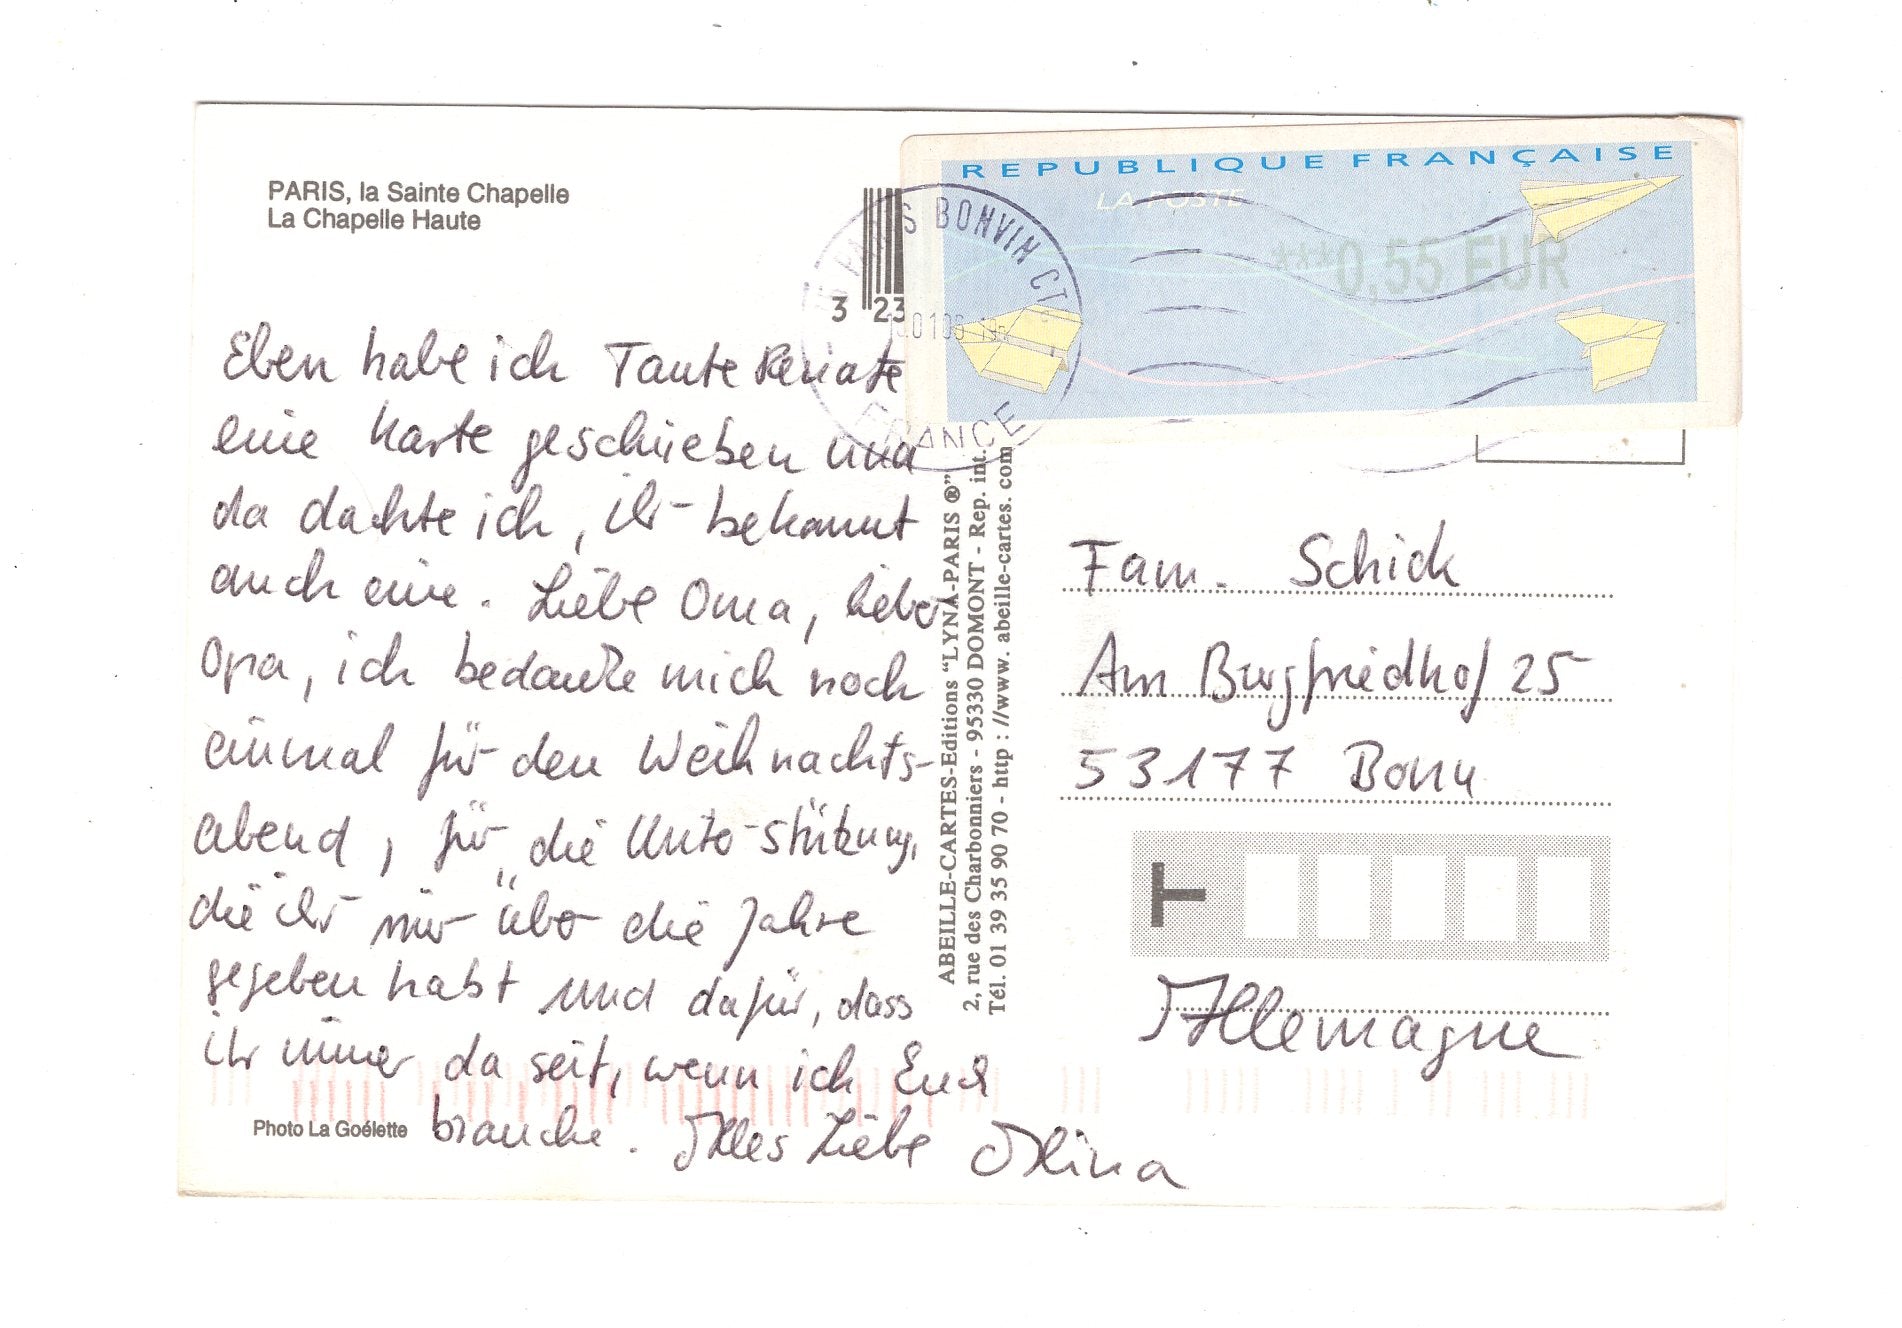 PARIS, la Sainte Chapelle
La Chapelle Haute
Eben habe ich Tante Renate
eine Karte geschrieben und
da dachte ich, ihr bekommt
auch eine. Liebe Oma, lieber
Opa, ich bedanke mich noch
einmal für den Weihnachts-
abend, für die Unterstützung,
die ihr mir über die Jahre
gegeben habt und dafür, dass
ihr immer da seit, wenn ich Euch
brauche. Alles Liebe Alina
Photo La Goélette
3 23
PARIS BONVIN CT
FRANCE
REPUBLIQUE FRANÇAISE
LA POSTE
***0,55 EUR
ABEILLE-CARTES-Editions “LYNA-PARIS ®”
2, rue des Charbonniers - 95330 DOMONT - Rep. int.
Tél. 01 39 35 90 70 - http : //www. abeille-cartes. com
Fam. Schick
Am Burgfriedhof 25
53177 Bonn
T
Allemagne